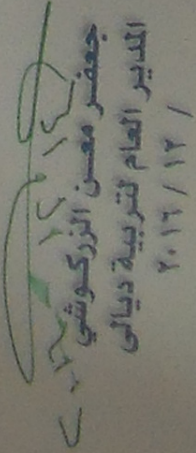 جعفر معن الزركوشي
المدير العام لتربية ديالى
/ ١٢ / ٢٠١٦